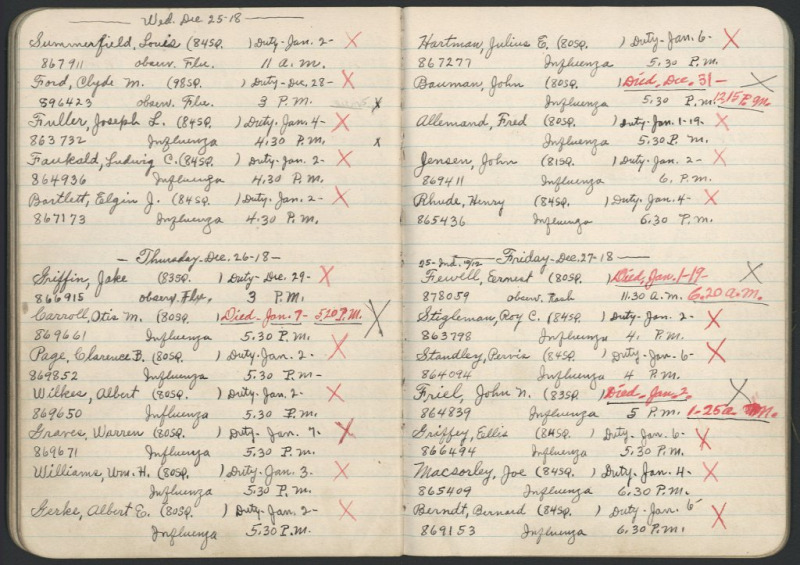 Wed. Dec 25-18-
Summerfield, Louis (84SQ. ) Duty-Jan. 2- X
867911 observ. Flu. 11 A.M.
Ford, Clyde M. (98SQ. ) Duty-Dec. 28- X
896423 observ. Flu. 3 P.M. x
Fuller, Joseph L. (84SQ. ) Duty-Jan. 4- X
863732 Influenza 4:30 P.M. x
Faukald, Ludwig C. (84SQ. ) Duty-Jan. 2- X
864936 Influenza 4.30 P.M.
Bartlett, Elgin J. (84SQ. ) Duty-Jan. 2- X
867173 Influenza 4.30 P.M.
- Thursday-Dec. 26-18-
Griffin, Jake (83SQ. ) Duty-Dec. 29- X
866915 observ. Flu. 3 P.M.
Carroll, Otis M. (80SQ. ) Died-Jan. 7- 5.20 P.M. X
869661 Influenza 5.30 P.M.
Page, Clarence B. (80SQ. ) Duty-Jan. 2- X
869852 Influenza 5.30 P.M-
Wilkes, Albert (80SQ. ) Duty-Jan. 2- X
869650 Influenza 5.30 P.M.
Graves, Warren (80SQ. ) Duty-Jan. 7- X
869671 Influenza 5.30 P.M.
Williams, Wm. H. (80SQ. ) Duty-Jan. 3- X
Influenza 5.30 P.M.
Gerke, Albert E. (80SQ. ) Duty-Jan. 2- X
Influenza 5.30 P.M.
Hartman, Julius E. (80SQ. ) Duty-Jan. 6- X
867277 Influenza 5.30 P.M.
Bauman, John (80SQ. ) Died, Dec. 31- X
Influenza 5.30 P.M. 12.15 P.M.
Allemand, Fred (80SQ. ) Duty-Jan. 1-19- X
Influenza 5.30 P.M.
Jensen, John (81SQ. ) Duty-Jan. 2- X
869411 Influenza 6. P.M.
Rhude, Henry (84SQ. ) Duty-Jan. 4- X
865436 Influenza 6.30 P.M.
- Friday-Dec. 27-18-
Fewell, Ernest (80SQ. ) Died, Jan. 1-19- X
878059 observ. Rash 11.30 A.M. 6.20 A.M.
Stigleman, Roy C. (84SQ. ) Duty-Jan. 2- X
863798 Influenza 4. P.M.
Standley, Pervis (84SQ. ) Duty-Jan. 6- X
864094 Influenza 4 P.M.
Friel, John N. (83SQ. ) Died-Jan. 2. X
864839 Influenza 5 P.M. 1-25 a. M.
Griffey, Ellis (84SQ. ) Duty-Jan. 6- X
866494 Influenza 5.30 P.M.
Macsorley, Joe (84SQ. ) Duty-Jan. 4- X
865409 Influenza 6.30 P.M.
Berndt, Bernard (84SQ. ) Duty-Jan. 6- X
869153 Influenza 6.30 P.M.